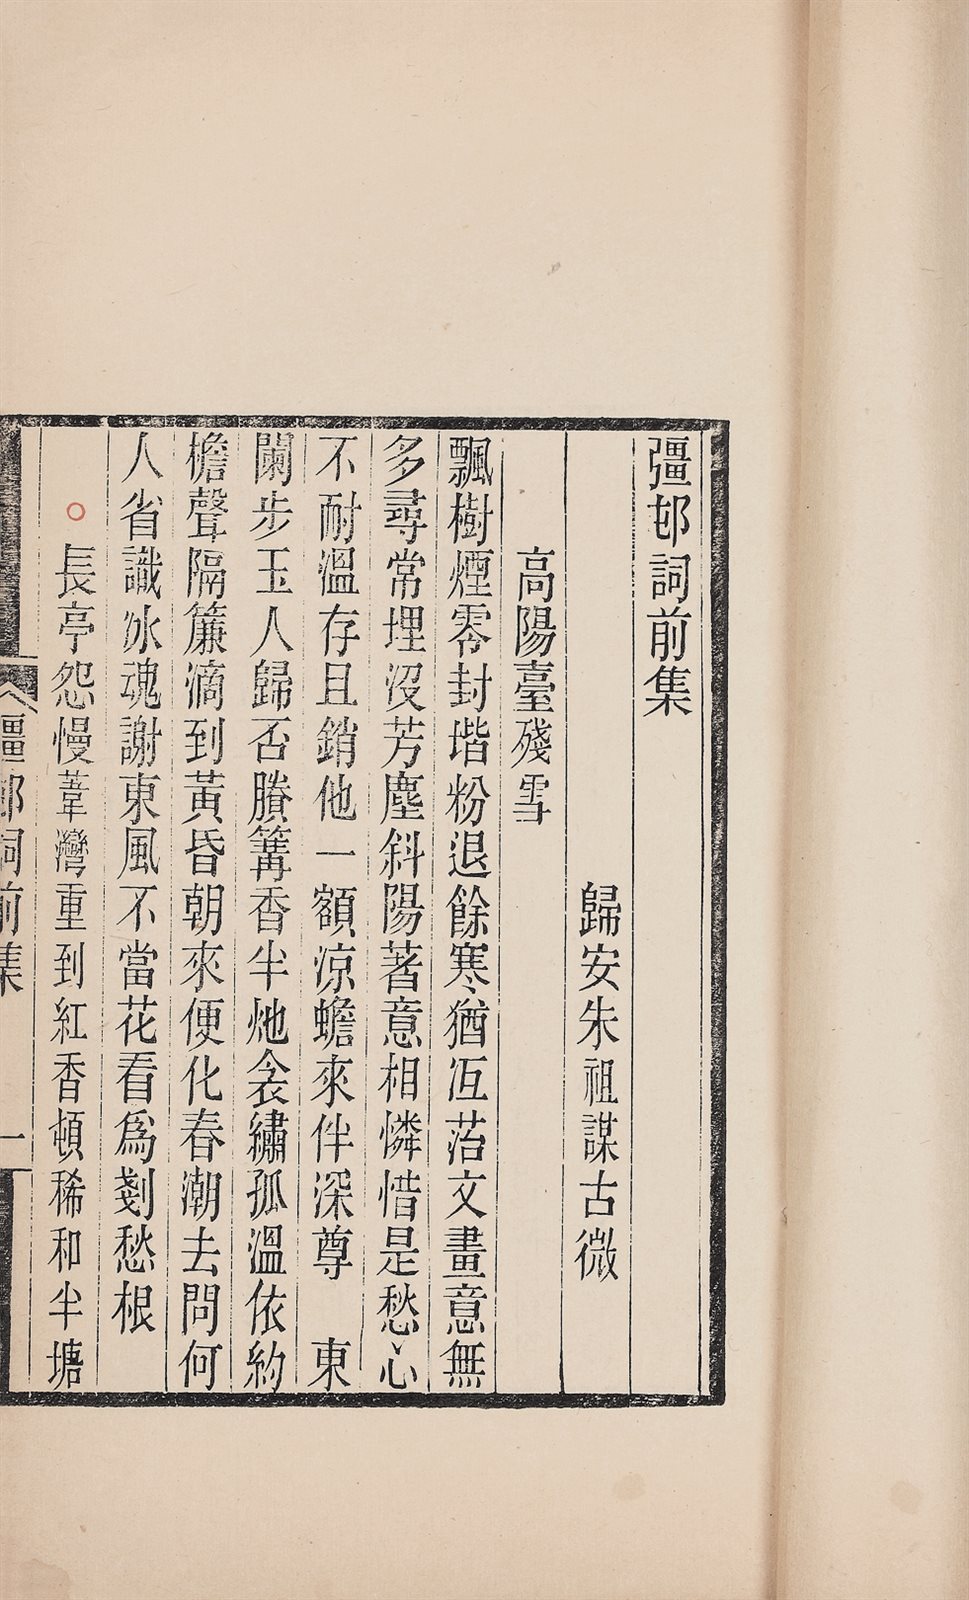 彊邨詞前集
歸安朱祖謀古微
高陽臺殘雪
飄樹煙零封堦粉退餘寒猶沍苔文畫意無
多尋常埋沒芳塵斜陽著意相憐惜是愁心
不耐溫存且銷他一額涼蟾來伴深尊　東
闌步玉人歸否賸篝香半灺衾繡孤溫依約
檐聲隔簾滴到黃昏朝來便化春潮去問何
人省識冰魂謝東風不當花看爲剗愁根
長亭怨慢葦灣重到紅香頓稀和半塘
彊邨詞前集
一